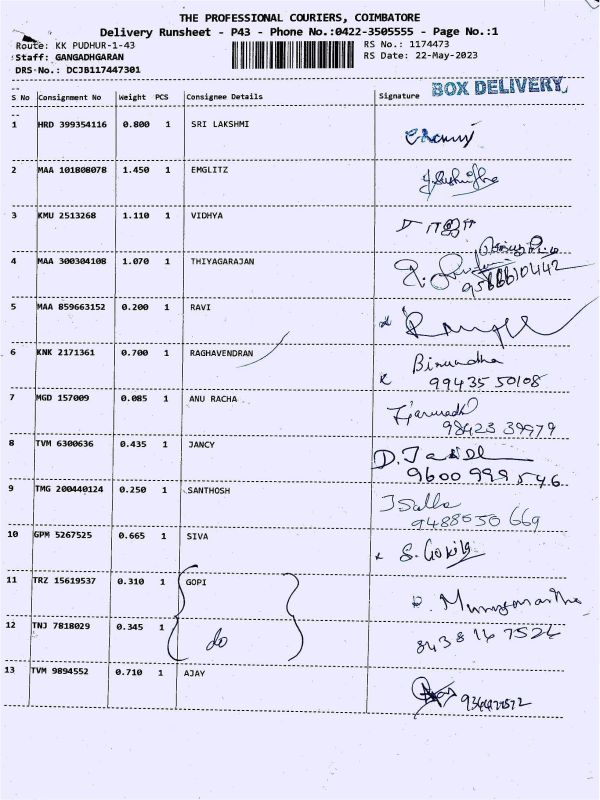 THE PROFESSIONAL COURIERS, COIMBATORE
Delivery Runsheet - P43 - Phone No.:0422-3505555 - Page No.:1
Route: KK PUDHUR-1-43 RS No.: 1174473
Staff: GANGADHGARAN RS Date: 22-May-2023
DRS-No.: DCJB117447301
BOX DELIVERY
S No Consignment No Weight PCS Consignee Details Signature
1 HRD 399354116 0.800 1 SRI LAKSHMI
2 MAA 101808078 1.450 1 EMGLITZ
3 KMU 2513268 1.110 1 VIDHYA
4 MAA 300304108 1.070 1 THIYAGARAJAN
5 MAA 859663152 0.200 1 RAVI
6 KNK 2171361 0.700 1 RAGHAVENDRAN
99435 50108
7 MGD 157009 0.085 1 ANU RACHA
98423 39979
8 TVM 6300636 0.435 1 JANCY
9600 999 546
9 TMG 200440124 0.250 1 SANTHOSH
9488550 669
10 GPM 5267525 0.665 1 SIVA
S. Gokila
11 TRZ 15619537 0.310 1 GOPI
12 TNJ 7818029 0.345 1 do
13 TVM 9894552 0.710 1 AJAY